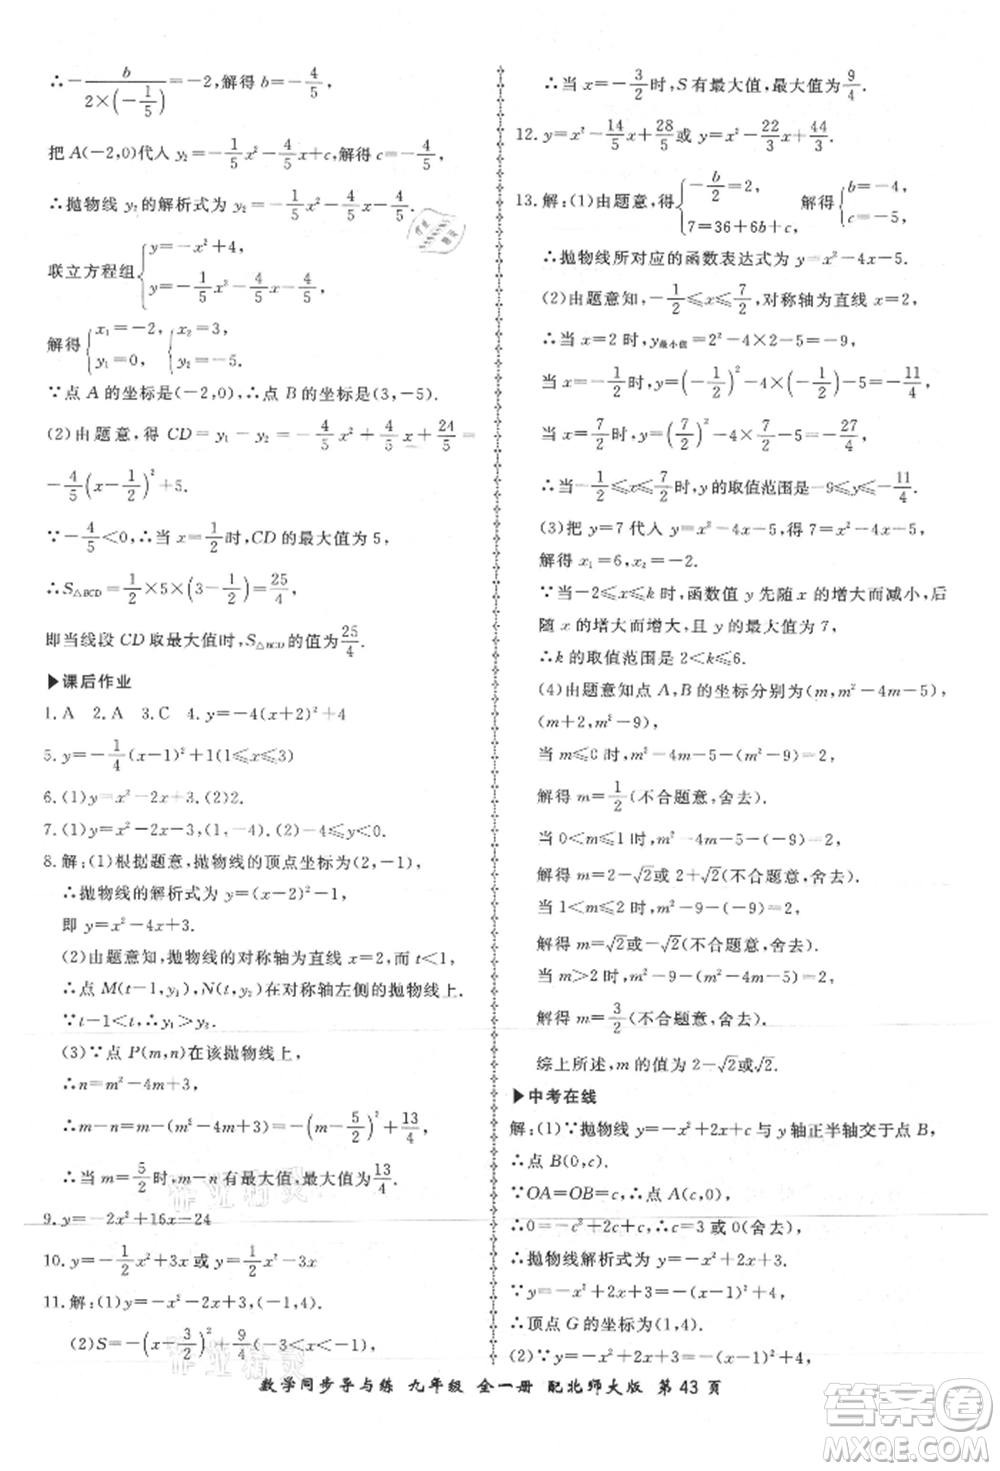 ∴-b/(2×(-1/5))=-2,解得 b=-4/5.
把 A(-2,0)代人 y₂=-1/5x²-4/5x+c,解得 c=-4/5,
∴抛物线 y₂的解析式为 y₂=-1/5x²-4/5x-4/5.
联立方程组{y=-x²+4, y=-1/5x²-4/5x-4/5,
解得{x₁=-2, y₁=0, {x₂=3, y₂=-5.
∵点 A 的坐标是(-2,0),∴点 B 的坐标是(3,-5).
(2)由题意,得 CD=y₁-y₂=-4/5x²+4/5x+24/5=
-4/5(x-1/2)²+5.
∵-4/5<0,∴当 x=1/2时,CD 的最大值为 5,
∴S△BCD=1/2×5×(3-1/2)=25/4,
即当线段 CD 取最大值时,S△BCD的值为25/4.
▶课后作业
1. A 2. A 3. C 4. y=-4(x+2)²+4
5. y=-1/4(x-1)²+1(1≤x≤3)
6. (1)y=x²-2x+3. (2)2.
7. (1)y=x²-2x-3,(1,-4). (2)-4≤y<0.
8. 解:(1)根据题意,抛物线的顶点坐标为(2,-1),
∴抛物线的解析式为 y=(x-2)²-1,
即 y=x²-4x+3.
(2)由题意知,抛物线的对称轴为直线 x=2,而 t<1,
∴点 M(t-1,y₁),N(t,y₂)在对称轴左侧的抛物线上.
∵t-1<t,∴y₁>y₂.
(3)∵点 P(m,n)在该抛物线上,
∴n=m²-4m+3,
∴m-n=m-(m²-4m+3)=-(m-5/2)²+13/4,
∴当 m=5/2时,m-n 有最大值,最大值为13/4.
9. y=-2x²+16x-24
10. y=-1/2x²+3x 或 y=1/2x²-3x
11. 解:(1)y=-x²-3x+4,(-1,4).
(2)S=-(x+3/2)²+9/4(-3<x<0).
∴当 x=-3/2时,S 有最大值,最大值为9/4.
12. y=x²-14/5x+28/5或 y=x²-22/3x+44/3.
13. 解:(1)由题意,得{-b/2=2, 7=36+6b+c, 解得{b=-4, c=-5.
∴抛物线所对应的函数表达式为 y=x²-4x-5.
(2)由题意知,-1/2≤x≤7/2,对称轴为直线 x=2,
∴当 x=2 时,y最小值=2²-4×2-5=-9,
当 x=-1/2时,y=(-1/2)²-4×(-1/2)-5=-11/4,
当 x=7/2时,y=(7/2)²-4×7/2-5=-27/4,
∴当-1/2≤x≤7/2时,y 的取值范围是-9≤y≤-11/4.
(3)把 y=7 代入 y=x²-4x-5,得 7=x²-4x-5,
解得 x₁=6,x₂=-2.
∵当-2≤x≤k 时,函数值 y 先随 x 的增大而减小,后
随 x 的增大而增大,且 y 的最大值为 7,
∴k 的取值范围是 2<k≤6.
(4)由题意知点 A,B 的坐标分别为(m,m²-4m-5),
(m+2,m²-9).
当 m≤0 时,m²-4m-5-(m²-9)=2,
解得 m=1/2(不合题意,舍去).
当 0<m≤1 时,m²-4m-5-(-9)=2,
解得 m=2-√2或 2+√2(不合题意,舍去).
当 1<m≤2 时,m²-9-(-9)=2,
解得 m=√2或-√2(不合题意,舍去).
当 m>2 时,m²-9-(m²-4m-5)=2,
解得 m=3/2(不合题意,舍去).
综上所述,m 的值为 2-√2或√2.
▶中考在线
解:(1)∵抛物线 y=-x²+2x+c 与 y 轴正半轴交于点 B,
∴点 B(0,c).
∵OA=OB=c,∴点 A(c,0),
∴0=-c²+2c+c,∴c=3 或 0(舍去),
∴抛物线解析式为 y=-x²+2x+3.
∵y=-x²+2x+3=-(x-1)²+4,
∴顶点 G 的坐标为(1,4).
(2)∵y=-x²+2x+3=-(x-1)²+4,
数学同步导与练 九年级 全一册 配北师大版 第 43 页
作业精灵
作业精灵
答案圈
MXQE.COM